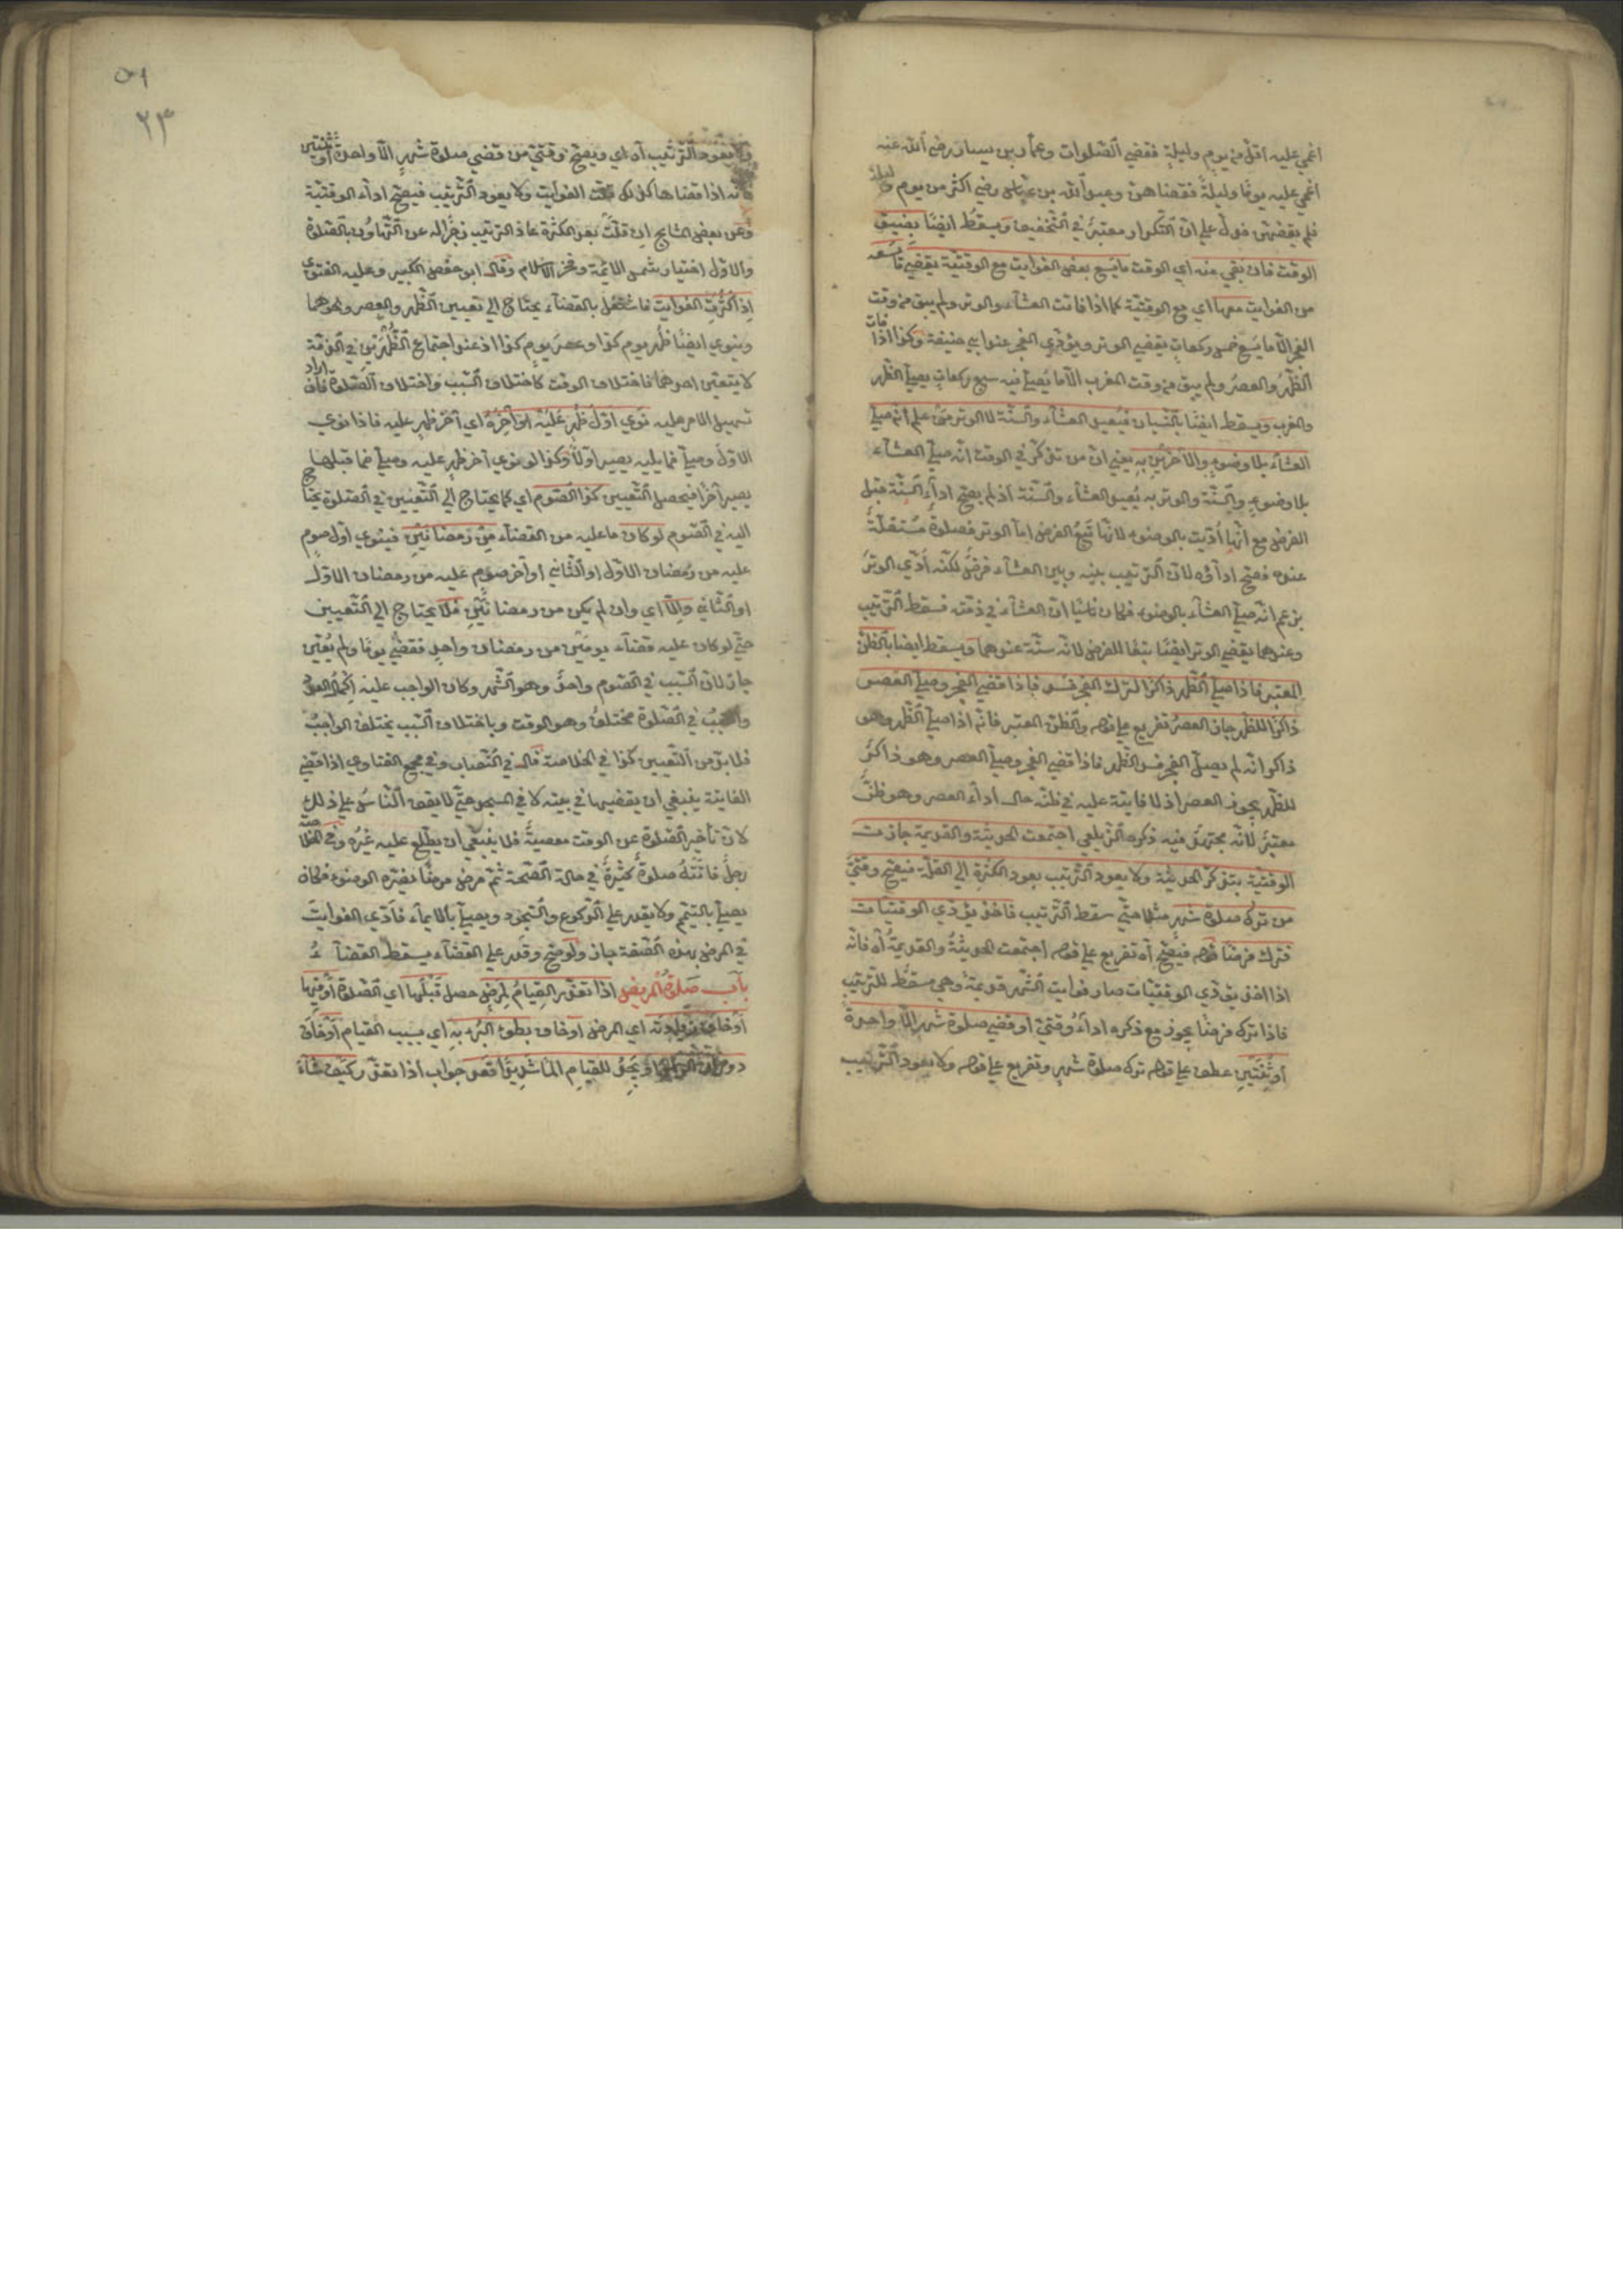 اغمي عليه اقل من يوم وليلة فقضي الصلوات وعمار بن ياسر رضي الله عنه
اغمي عليه يوما وليلة فقضاهن وعبد الله بن عباس رضي اكثر من يوم وليلة
فلم يقضهن فدل علي ان التكرار معتبر في التخفيف ويسقط ايضا بضيق
الوقت فان بقي منه اي الوقت ما يسع بعض الفوايت مع الوقتية يقضي ما يسعه
من الفوايت معها اي مع الوقتية كما اذا فاتت العشاء والوتر ولم يبق من وقت
الفجر الا ما يسع خمس ركعات يقضي الوتر ويؤدي الفجر عند ابي حنيفة وكذا اذا فات
الظهر والعصر ولم يبق من وقت المغرب الا ما يصلي فيه سبع ركعات يصلي الظهر
والمغرب ويسقط ايضا بالنسيان فيعيد العشاء والسنة لا الوتر من علم انه صلي
العشاء بلا وضوء والاخرين به يعني ان من تذكر في الوقت انه صلي العشاء
بلا وضوء والسنة والوتر به يعيد العشاء والسنة اذ لم يصح اداء السنة قبل
الفرض مع انها اديت بالوضوء لانها تبع الفرض اما الوتر فصلوة مستقلة
عنده فصح اداؤه لان الترتيب بينه وبين العشاء فرض لكنه ادي الوتر
بزعم انه صلي العشاء بالوضوء فكان ناسيا ان العشاء في ذمته فسقط الترتيب
وعندهما يقضي الوتر ايضا تبعا للفرض لانه سنة عندهما ويسقط ايضا بالظن
المعتبر فاذا صلي الظهر ذاكرا لترك الفجر فسد فاذا قضي الفجر وصلي العصر
ذاكرا للظهر جاز العصر تفريع علي قوله والظن المعتبر فانه اذا صلي الظهر وهو
ذاكر انه لم يصل الفجر فسد الظهر فاذا قضي الفجر وصلي العصر وهو ذاكر
للظهر يجوز العصر اذ لا فايتة عليه في ظنه حال اداء العصر وهو ظن
معتبر لانه مجتهد فيه ذكره الزيلعي اجتمعت الحديثة والقديمة جازت
الوقتية بتذكر الحديثة ولا يعود الترتيب بعود الكثرة الي القلة فيصح وقتي
من ترك صلوة شهر مثلا حتي سقط الترتيب فاخذ يؤدي الوقتيات
فترك فرضا قوله فيصح آه تفريع علي قوله اجتمعت الحديثة والقديمة آه فانه
اذا اخذ يؤدي الوقتيات صار فوايت الشهر قديمة وهي مسقط للترتيب
فاذا ترك فرضا يجوز مع ذكره اداء وقتي او قضي صلوة شهر الا واحدة
او ثنتين عطف علي قوله ترك صلوة شهر وتفريع علي قوله ولا يعود الترتيب
٥١
٢٣
ولا يعود الترتيب آه اي ويصح وقتي من قضي صلوة شهر الا واحدة او ثنتين
فانه اذا قضاها كذلك قلت الفوايت ولا يعود الترتيب فيصح اداء الوقتية
وعن بعض المشايخ ان قلت بعد الكثرة عاد الترتيب زجرا له عن التهاون بالصلوة
والاول اختيار شمس الائمة وفخر الاسلام وقال ابو حفص الكبير وعليه الفتوي
اذا كثرت الفوايت فاشتغل بالقضاء يحتاج الي تعيين الظهر والعصر ونحوهما
وينوي ايضا ظهر يوم كذا وعصر يوم كذا اذ عند اجتماع الظهرين في الذمة
لا يتعين احدهما فاختلاف الوقت كاختلاف السبب واختلاف الصلوة فان اراد
تسهيل الامر عليه نوي اول ظهر عليه او آخره اي آخر ظهر عليه فاذا نوي
الاول وصلي فما يليه يصير اولا وكذا لو نوي آخر ظهر عليه وصلي فما قبلها
يصير آخرا فيحصل التعيين كذا الصوم اي كما يحتاج الي التعيين في الصلوة يحتاج
اليه في الصوم لو كان ما عليه من القضاء من رمضانين فينوي اول صوم
عليه من رمضان الاول او الثاني او آخر صوم عليه من رمضان الاول
او الثاني والا اي وان لم يكن من رمضانين فلا يحتاج الي التعيين
حتي لو كان عليه قضاء يومين من رمضان واحد فقضي يوما ولم يعين
جاز لان السبب في الصوم واحد وهو الشهر وكان الواجب عليه اكمال العدد
والسبب في الصلوة مختلف وهو الوقت وباختلاف السبب يختلف الواجب
فلا بد من التعيين كذا في الخلاصة قال في النصاب وفي مجمع الفتاوي اذا قضي
الفايتة ينبغي ان يقضيها في بيته لا في المسجد حتي لا يقف الناس علي ذلك
لان تأخير الصلوة عن الوقت معصية فلا ينبغي ان يطلع عليه غيره وفي الخلاصة
رجل فاتته صلوة كثيرة في حالة الصحة ثم مرض مرضا يضره الوضوء فكان
يصلي بالتيمم ولا يقدر علي الركوع والسجود ويصلي بالايماء فادي الفوايت
في المرض بهذه الصفة جاز ولو صح وقدر علي القضاء يسقط القضاء
باب صلوة المريض اذا تعذر القيام لمرض حصل قبلها اي الصلوة او فيها
او خاف زيادته اي المرض او خاف بطوء البرء به اي بسبب القيام او خاف
دوران الراس او يجد للقيام الما شديدا قعد جواب اذا تعذر كيف شاء